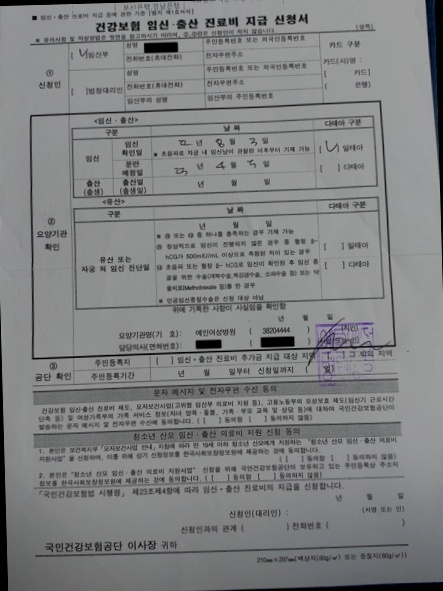 ■ 임신·출산 진료비 지급 등에 관한 기준 [별지 제1호서식]
건강보험 임신·출산 진료비 지급 신청서
(앞쪽)
① 신청인
[ √ ]임산부
성명
주민등록번호 또는 외국인등록번호
카드 구분
전화번호(휴대전화)
전자우편주소
카드(사)명 :
[ ]법정대리인
성명
주민등록번호 또는 외국인등록번호
[ 카드]
전화번호(휴대전화)
전자우편주소
[ 은행]
임산부의 성명
임산부의 주민등록번호
② 요양기관 확인
<임신·출산>
구분
날 짜
다태아 구분
임신
임신 확인일
22 년 8 월 3 일
※ 초음파로 자궁 내 임신낭이 관찰된 이후부터 기재 가능
[ √ ] 일태아
분만 예정일
23 년 4 월 5 일
[ ] 다태아
출산 (출생)
출산일 (출생일)
년 월 일
<유산>
구분
날 짜
다태아 구분
유산 또는 자궁 외 임신 진단일
년 월 일
※ ㉮ 또는 ㉯ 중 하나를 충족하는 경우 기재 가능
㉮ 정상적으로 임신이 진행되지 않은 경우 중 혈청 β-hCG가 500mIU/mL 이상으로 측정된 적이 있는 경우
㉯ 초음파 또는 혈청 β-hCG로 임신이 확인된 후 임신 종결을 위한 수술(개복수술,복강경수술, 소파수술 등) 또는 약물치료(Methotrexate 등)를 한 경우
※ 인공임신중절수술은 신청 대상 아님
[ ] 일태아
[ ] 다태아
위에 기록한 사항이 사실임을 확인함
년 월 일
요양기관명(기 호): 메인여성병원 ( 38204444 ) (직인)
담당의사(면허번호):
③ 공단 확인
주민등록지
[ ] 임신·출산 진료비 추가금 지급 대상 지역 [ ] 그 밖의 지역
주민등록기간
년 월 일부터 신청일까지
문자 메시지 및 전자우편 수신 동의
건강보험 임신·출산 진료비 제도, 모자보건사업(고위험 임산부 의료비 지원 등), 고용노동부의 모성보호 제도(임신기 근로시간
단축 등) 및 여성가족부의 가족 서비스 정보(자녀 양육·돌봄, 가족·부모 교육 및 상담 등)에 대하여 국민건강보험공단이
발송하는 문자 메시지 및 전자우편 수신에 동의합니다. ( [ ] 동의함 [ ] 동의하지 않음)
청소년 산모 임신·출산 의료비 지원 신청 동의
1. 본인은 보건복지부 「모자보건사업 안내」지침에 따라 만 19세 이하의 청소년 산모에게 지원하는 "청소년 산모 임신·출산 의료비
지원사업" 을 신청하며, 이를 위해 상기 신청정보를 한국사회보장정보원에 제공하는 것에 동의합니다.
( [ ] 동의함 [ ] 동의하지 않음)
2. 본인은 "청소년 산모 임신·출산 의료비 지원사업" 신청을 위해 국민건강보험공단이 보유하고 있는 주민등록상 주소지
정보를 한국사회보장정보원에 제공하는 것에 동의합니다. ( [ ] 동의함 [ ] 동의하지 않음)
「국민건강보험법 시행령」 제23조제4항에 따라 임신·출산 진료비의 지급을 신청합니다.
년 월 일
신청인(대리인) : (서명 또는 인)
신청인과의 관계 ( ) 전화번호 ( )
국민건강보험공단 이사장 귀하
210㎜×297㎜(백상지(80g/㎡) 또는 중질지(80g/㎡))